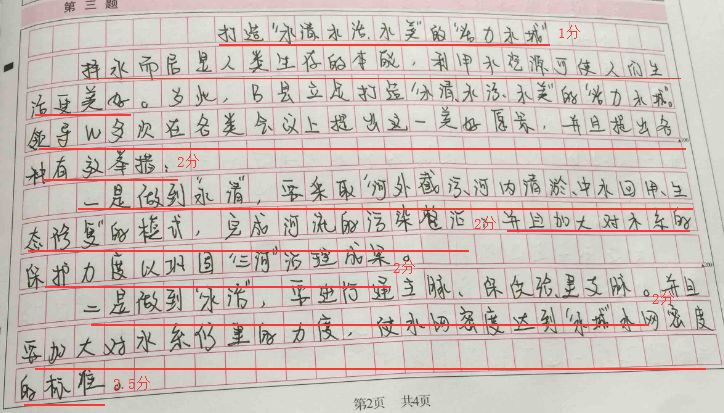 第三题
打造“水清、水活、水美”的“活力水城” 1分
择水而居是人类生存的本能，利用水资源可使人们生
活更美好。为此，B县立足打造“水清、水活、水美”的“活力水城”。
领导W多次在各类会议上提出这一美好愿景，并且提出各
种有效举措： 2分
一是做到“水清”，要采取“河外截污、河内清淤、中水回用、生
态修复”的模式，完成河流的污染整治 2分 并且加大对水系的
保护力度以巩固“三河”治理成果。 2分
二是做到“水活”，要进行通主脉、保支脉。并且 2分
要加大对水系的力度，使水网密度达到“水城”水网密度
的标准。 3.5分
第2页 共4页